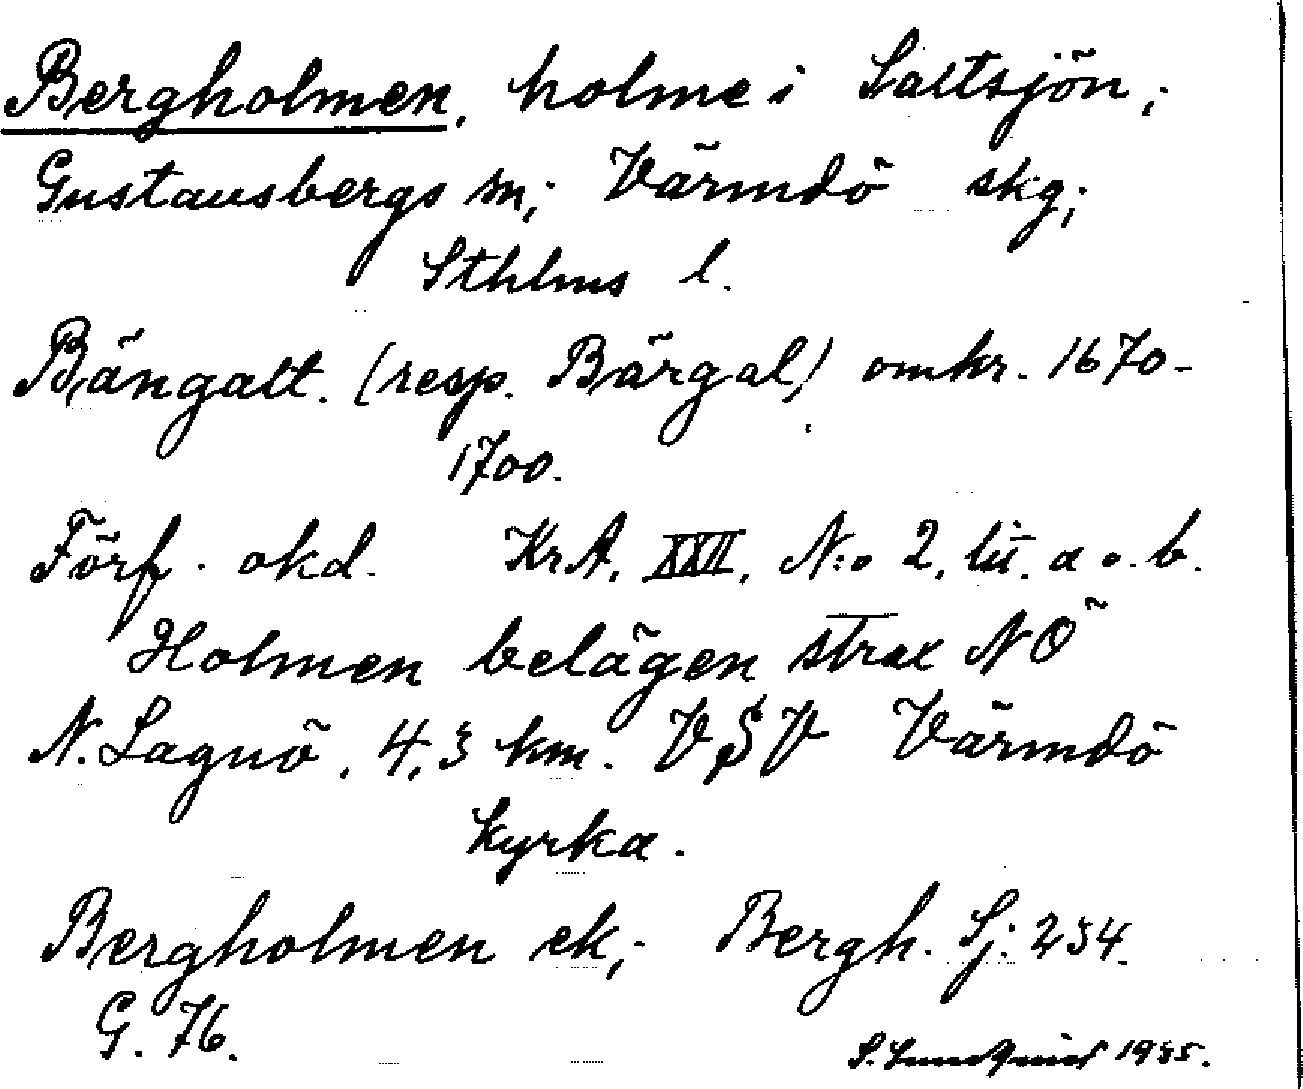 Bergholmen, holme i Saltsjön;
Gustavsbergs sn; Värmdö skg;
Sthlms l.
Bängalt. (resp. Bärgal) omkr. 1670-
1700.
Förf. okd. KrA, XXII, N:o 2, lit. a o. b.
Holmen belägen strax NÖ
N. Lagnö, 4,3 km. VSV Värmdö
kyrka.
Bergholmen ek; Bergh. Sj: 254.
G. 76.
S. Lundqvist 1935.